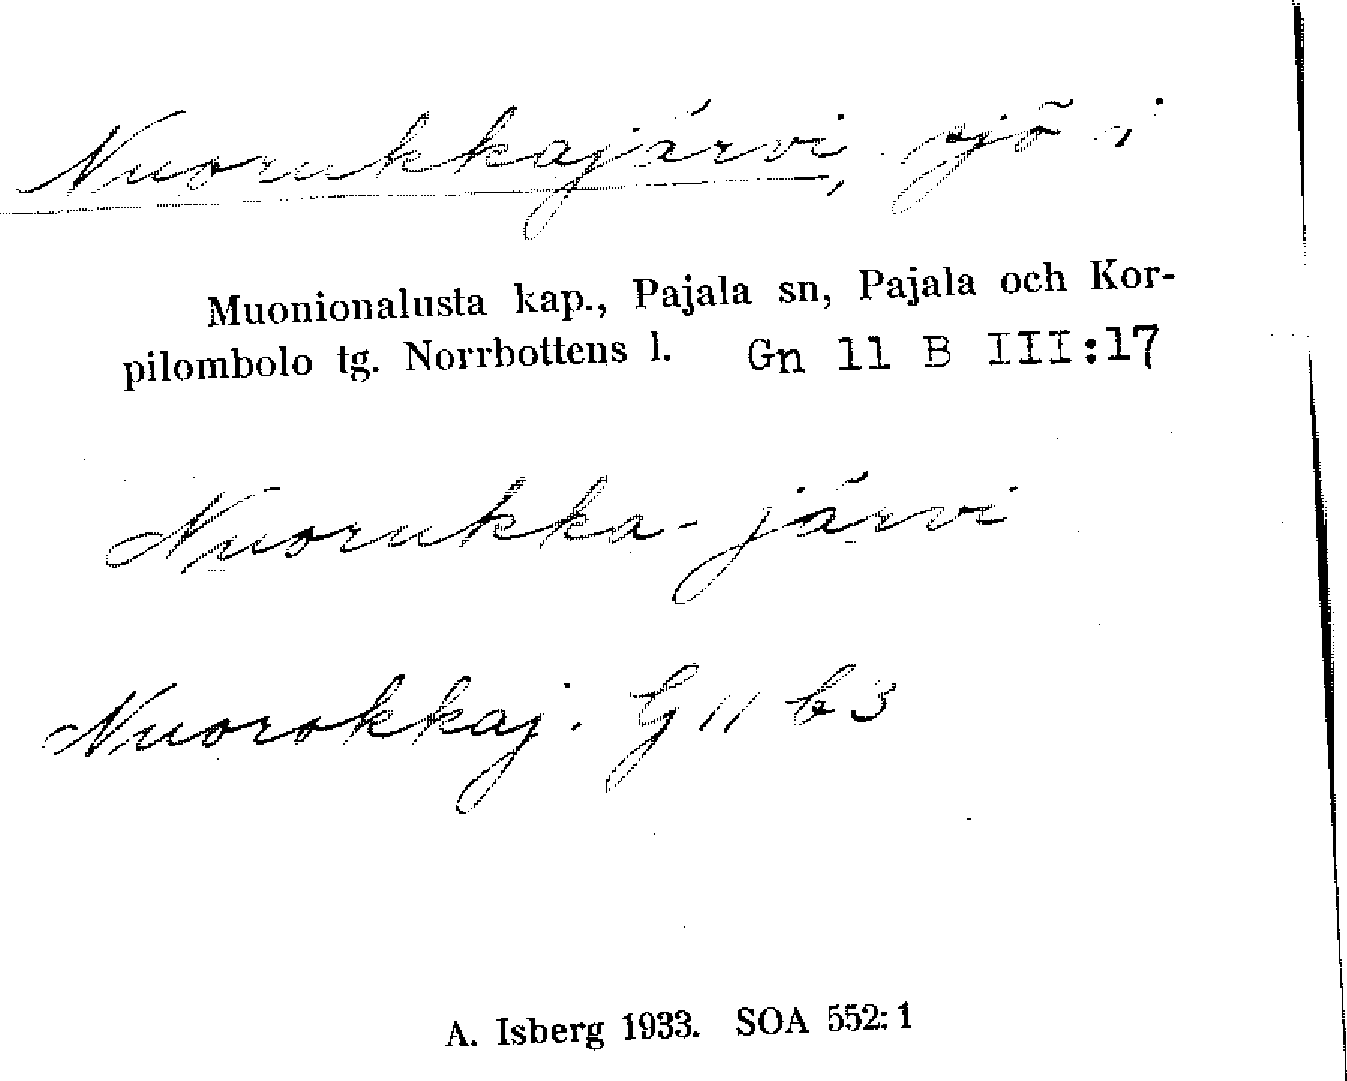 Nuorukkajärvi, sjö i
Muonionalusta kap., Pajala sn, Pajala och Kor-
pilombolo tg. Norrbottens l. Gn 11 B III:17
Nuorukka-järvi
Nuorokkaj. G 11 b 3
A. Isberg 1933. SOA 552:1